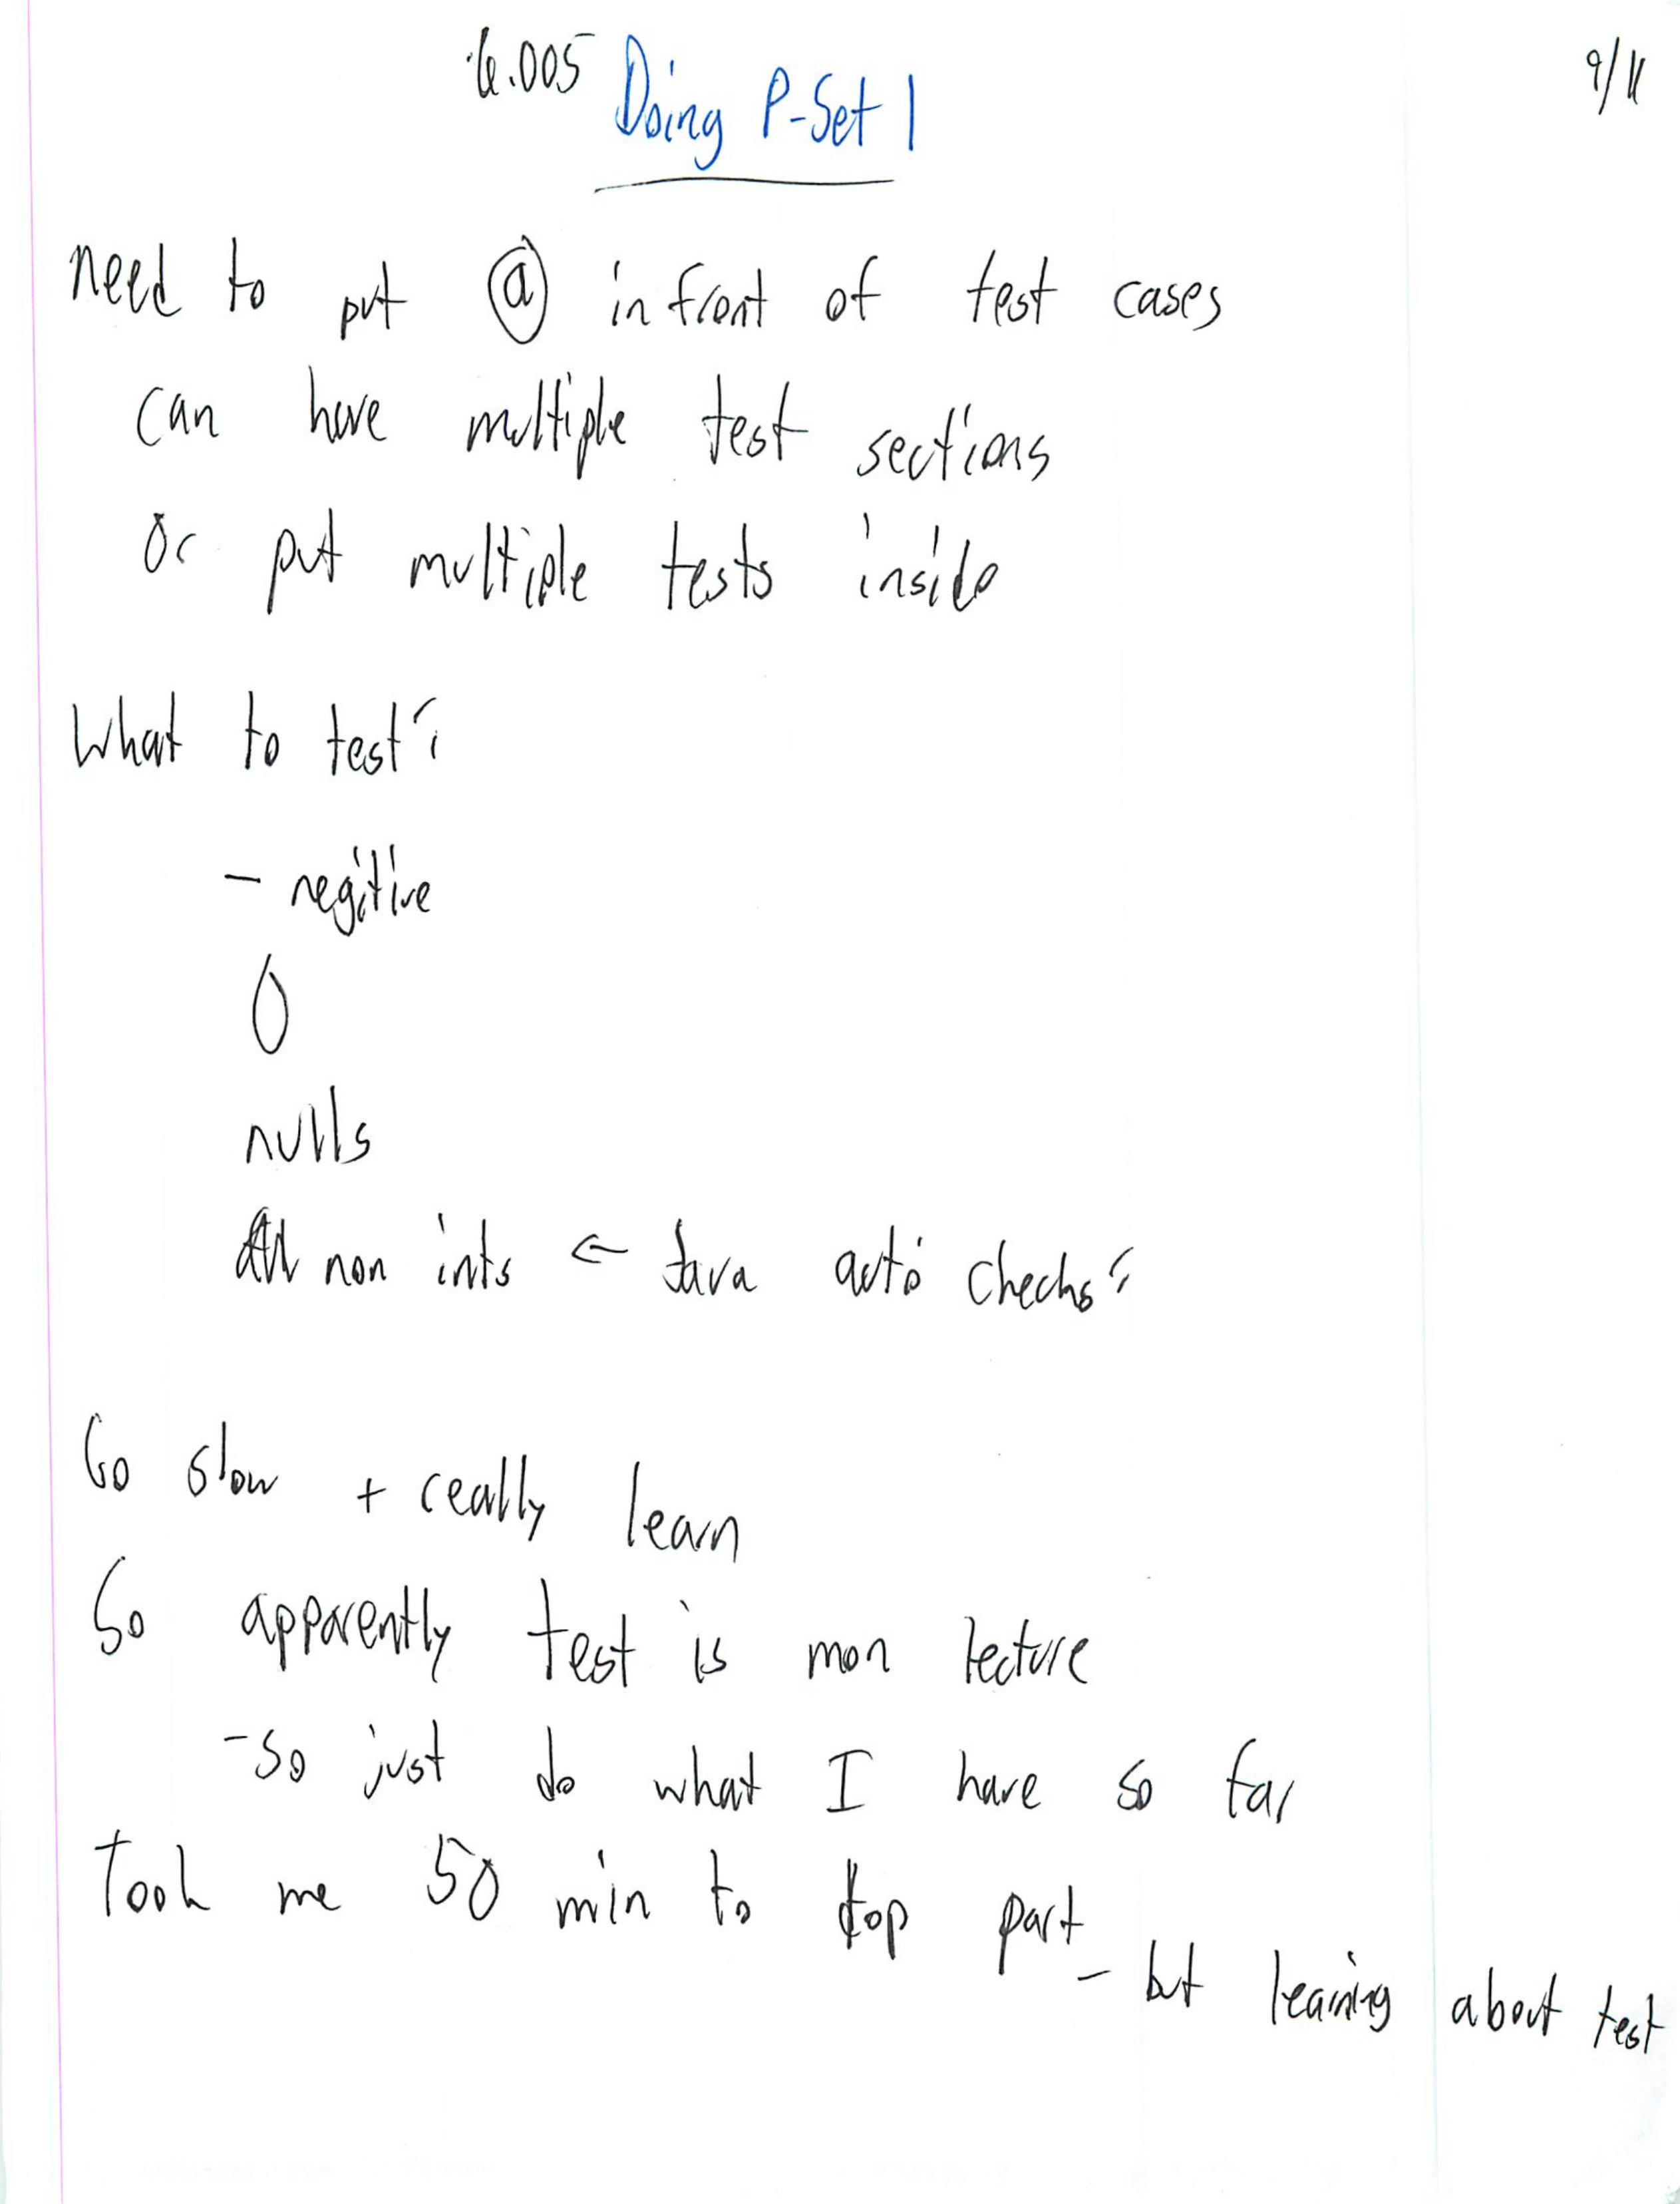 6.005 Doing P-Set 1
9/11
need to put @ in front of test cases
can have multiple test sections
or put multiple tests inside
What to test?
- negitive
0
nulls
All non ints ← Java auto checks?
Go slow + really learn
So apparently test is mon lecture
- so just do what I have so far
Took me 50 min to top part - but learning about test